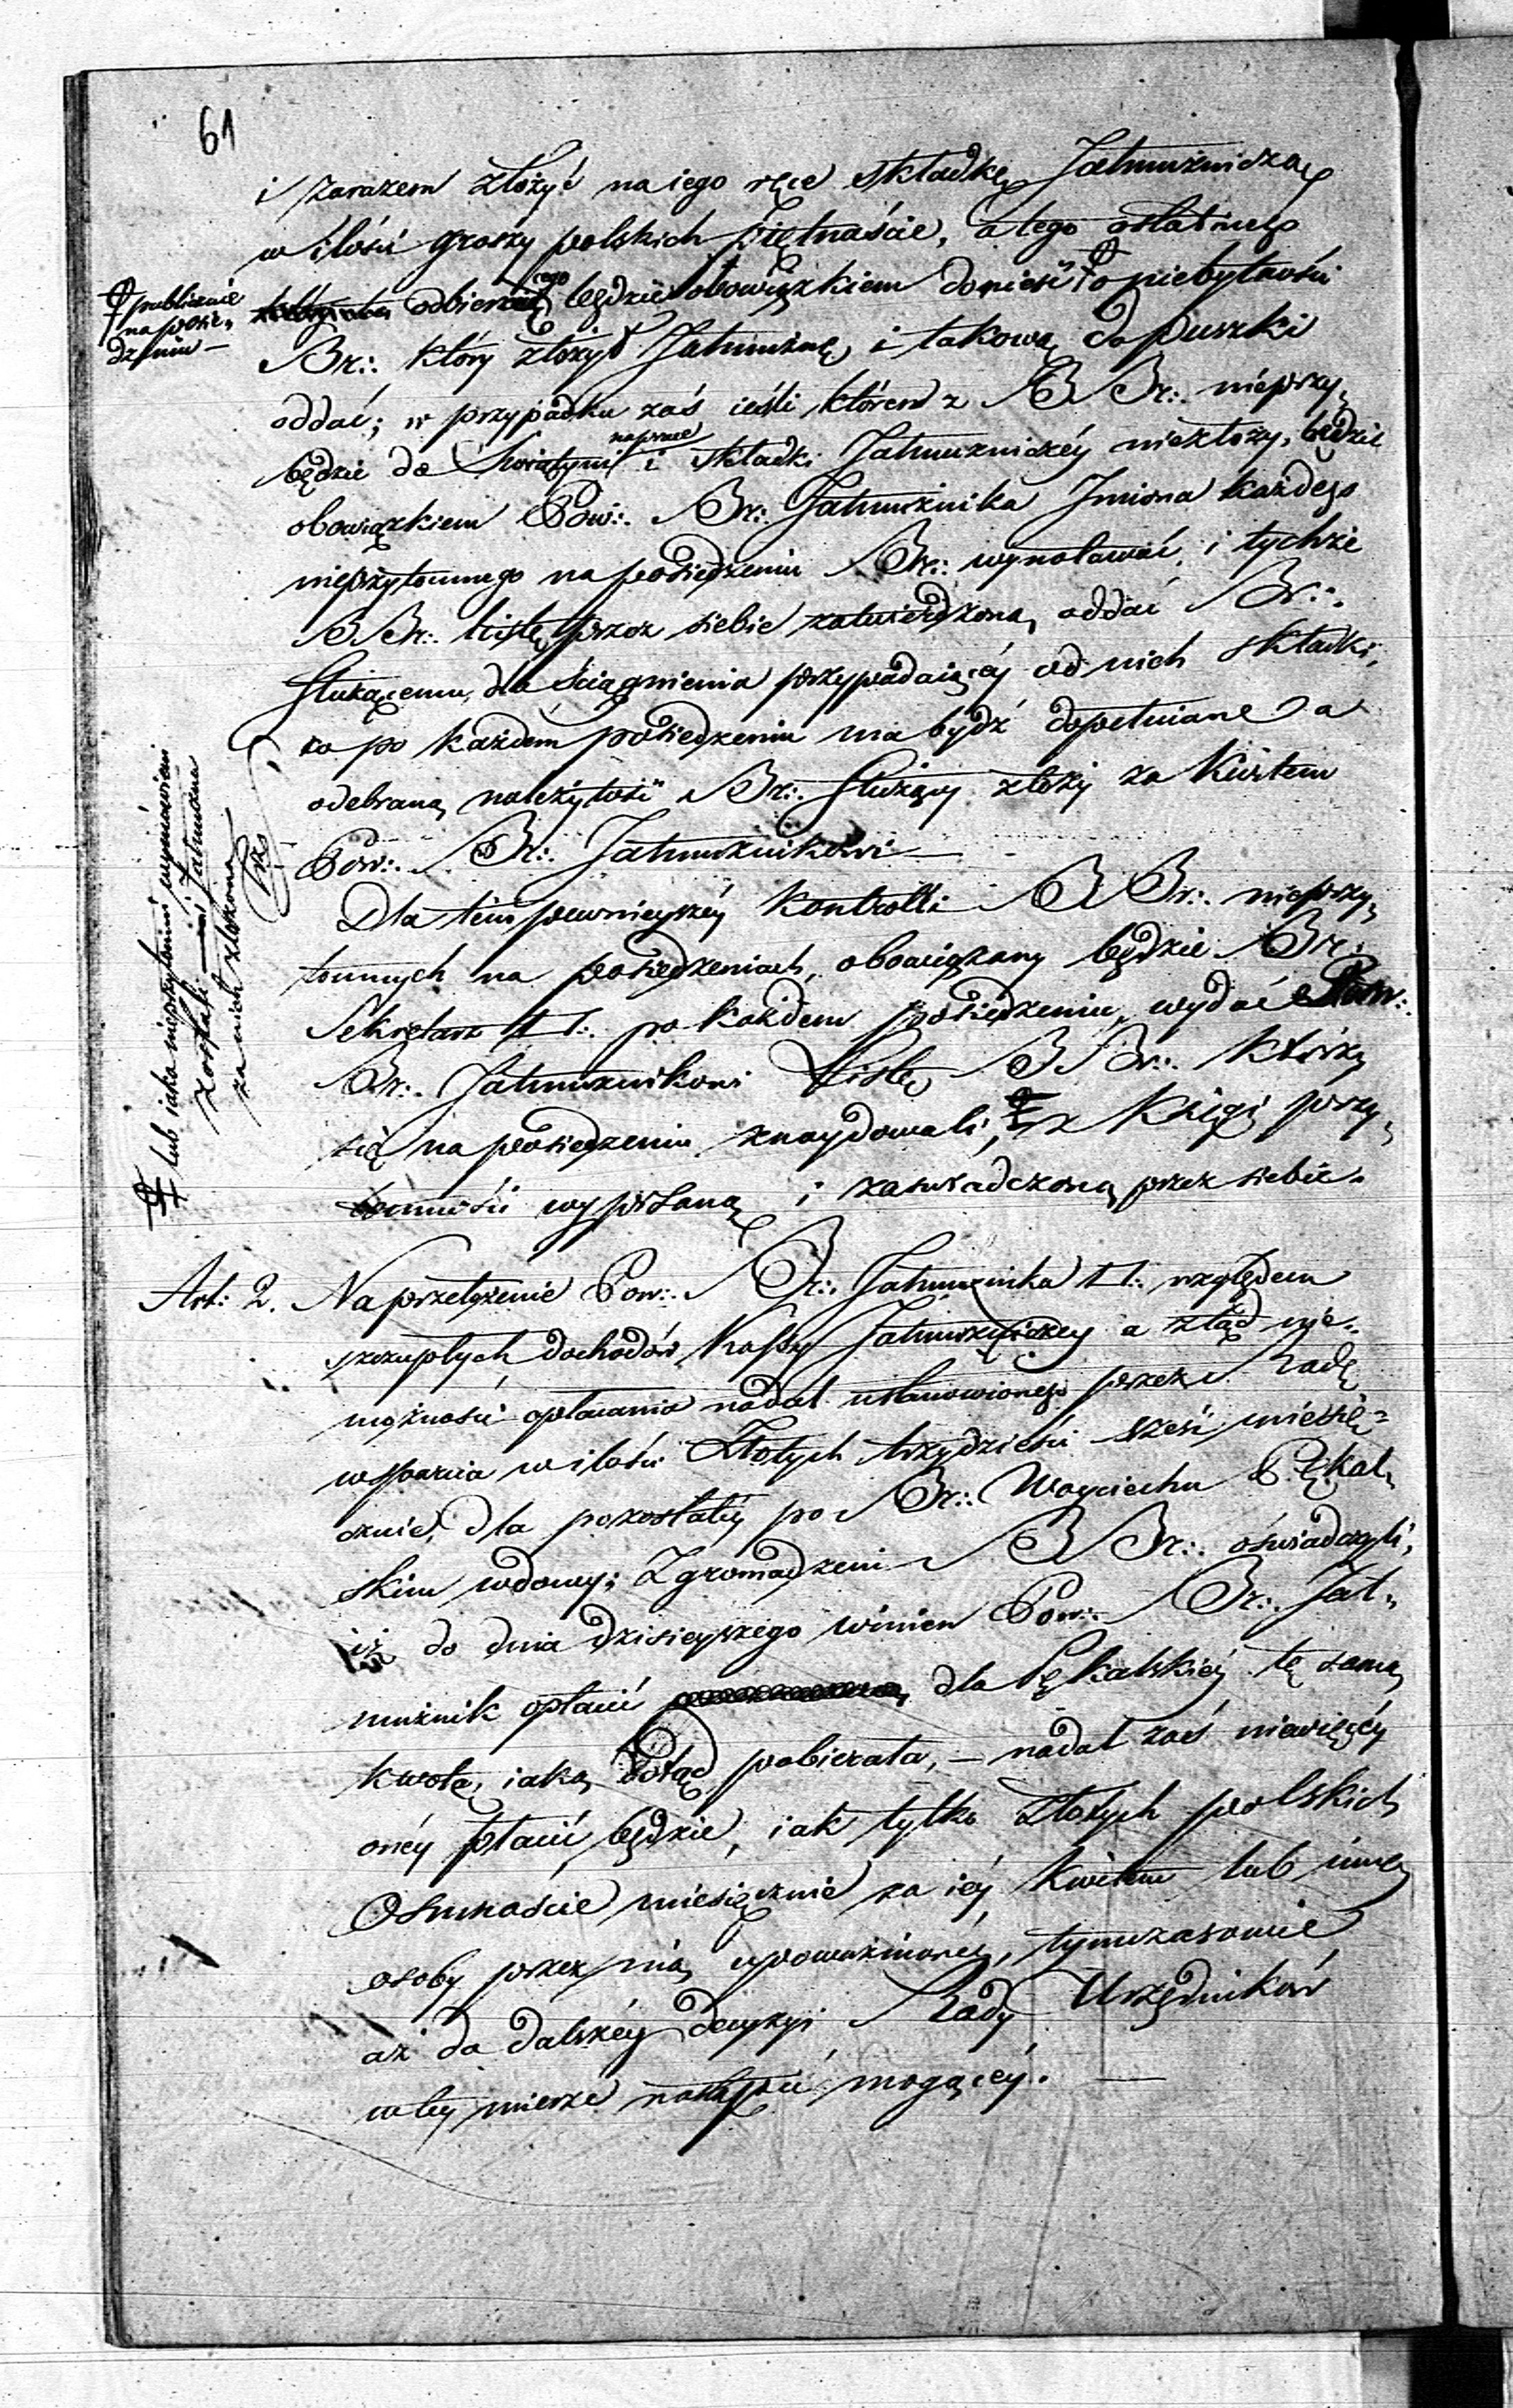 61
i zarazem złożyć na iego ręce składkę Jałmużniczą
w ilości groszy polskich piętnaście, a tego ostatniego
odbieraiącego będzie obowiązkiem donieść ₨ o niebytności
₨ publicznie
na posie„
dzeniu —
Br∴ który złożył Jałmużnę, i takową do puszki
oddać; w przypadku zaś ieśli któren z BBr∴ nieprzy„
będzie do Swiątyni i składki Jałmużniczéy niezłoży, będzie
obowiązkiem Pow∴ Br∴ Jałmużnika Imiona każdego
nieprzytomnego na posiedzeniu Br∴ wynotować, i tychże
BBr∴ listę przez siebie zatwierdzoną oddać Br∴
Służącemu, dla ściągnienia przypadaiącéy od nich składki,
co po każdém posiedzeniu ma bydź dopełniane a
odebraną należytość Br∴ Służący złoży za kwitem
Pow∴ Br∴ Jałmużnikowi —
Dla tém pewnieyszéy kontrolli BBr∴ nieprzy„
tomnych na posiedzeniach, obowiązany będzie Br∴
Sekretarz po każdem posiedzeniu, wydać Pow∴
Br∴ Jałmużnikowi Listę BBr∴ którzy
się na posiedzeniu znaydowali, ₨ z Księgi przy„
tomności wypisaną i zaświadczoną przez siebie.
₨ lub iako nieprzytomni wymówieni
zostali — i Jałmużna
za nich złożona
Art: 2. Na przełożenie Pow∴ Br∴ Jałmużnika względem
szczupłych dochodów Kassy Jałmużniczey a ztąd nie„
możności opłacania nadal ustanowionego przez Radę
wsparcia w ilości Złotych trzydzieści sześć miesię=
cznie, dla pozostałéy po Br∴ Woyciechu Pękal„
skim wdowy; Zgromadzeni BBr∴ oświadczyli,
iż do dnia dzisieyszego winien Pow∴ Br∴ Jał„
mużnik opłacić dla Pękalskiéy tę samą
kwotę, iaką dotąd pobierała, — nadal zaś niewięcéy
onéy płacić będzie, iak tylko Złotych polskich
Osmnaście miesięcznie za iéy kwitem lub innéy
osoby przez nią upoważnionéy, tymczasowie
aż do dalszéy decyzyi Rady Urzędników
w téy mierze nastąpić mogącéy. —